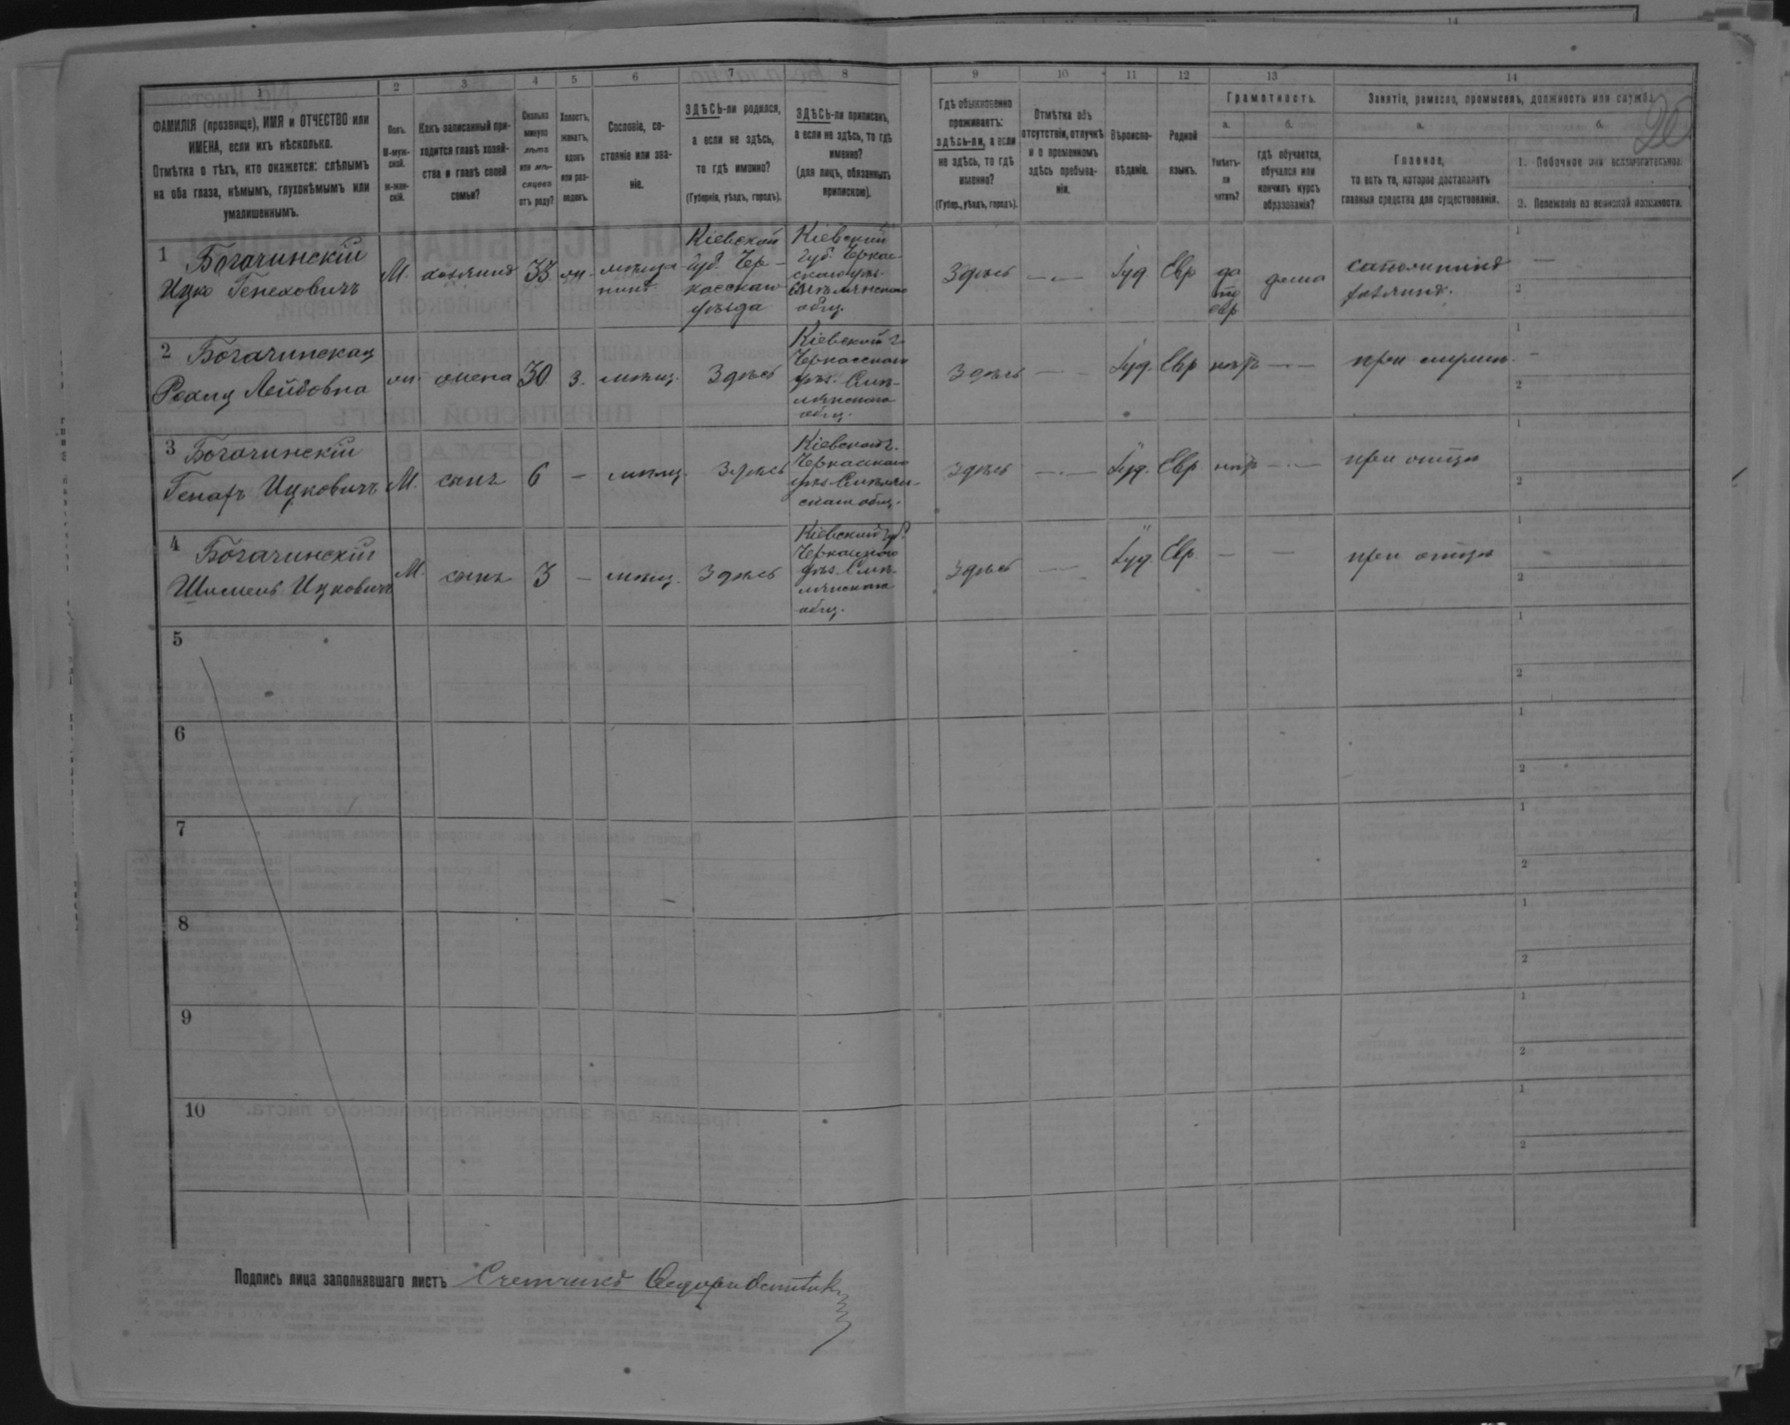 1 2 3 4 5 6 7 8 9 10 11 12 13 14
ФАМИЛІЯ (прозвище), ИМЯ и ОТЧЕСТВО или
ИМЕНА, если ихъ нѣсколько.
Отмѣтка о тѣхъ, кто окажется: слѣпымъ
на оба глаза, нѣмымъ, глухонѣмымъ или
умалишеннымъ.
Полъ.
М-муж-
ской.
Ж-жен-
скій.
Какъ записанный при-
ходится главѣ хозяй-
ства и главѣ своей
семьи?
Сколько
минуло
лѣтъ
или мѣ-
сяцевъ
отъ роду?
Холостъ,
женатъ,
вдовъ
или раз-
веденъ.
Сословіе, со-
стояніе или зва-
ніе.
ЗДѢСЬ-ли родился,
а если не здѣсь,
то гдѣ именно?
(Губернія, уѣздъ, городъ).
ЗДѢСЬ-ли приписанъ,
а если не здѣсь, то гдѣ
именно?
(для лицъ, обязанныхъ
припискою).
Гдѣ обыкновенно
проживаетъ:
здѣсь-ли, а если
не здѣсь, то гдѣ
именно?
(Губер., уѣздъ, городъ).
Отмѣтка объ
отсутствіи, отлучкѣ
и о временномъ
здѣсь пребыва-
ніи.
Вѣроиспо-
вѣданіе.
Родной
языкъ.
Грамотность.
а. б.
Умѣетъ-
ли
читать?
гдѣ обучается,
обучался или
кончилъ курсъ
образованія?
Занятіе, ремесло, промыселъ, должность или служба.
а. б.
Главное,
то есть то, которое доставляетъ
главныя средства для существованія.
1. Побочное или вспомогательное.
2. Положеніе по воинской повинности.
26
1 Богачинскій
Ицко Генеховичъ
М. хозяинъ 33 мѣща
нинъ
Кіевской
губ. Чер-
касскаго
уѣзда
Кіевской
губ. Черкас-
общ.
Здѣсь — Іуд. Евр да
евр
дома
1
2
2 Богачинская
Лейбовна
жена 30 з. мѣщ. Здѣсь
Кіевской г.
Черкасскаго
уѣз. Смѣ-
лянскаго
общ.
Здѣсь — Іуд. Евр нѣтъ —
1
2
3 Богачинскій
Ицковичъ М. сынъ 6 — мѣщ. Здѣсь
Кіевской г.
Черкасскаго
общ.
здѣсь — Іуд. Евр нѣтъ — при отцѣ
1
2
4 Богачинскій
Ицковичъ М. сынъ 3 — мѣщ. Здѣсь
Кіевской губ.
Черкасскаго
уѣз. Смѣ-
лянскаго
общ.
Здѣсь — Іуд. Евр — — при отцѣ
1
2
5
1
2
6
1
2
7
1
2
8
1
2
9
1
2
10
1
2
Подпись лица заполнявшаго листъ Счетчикъ